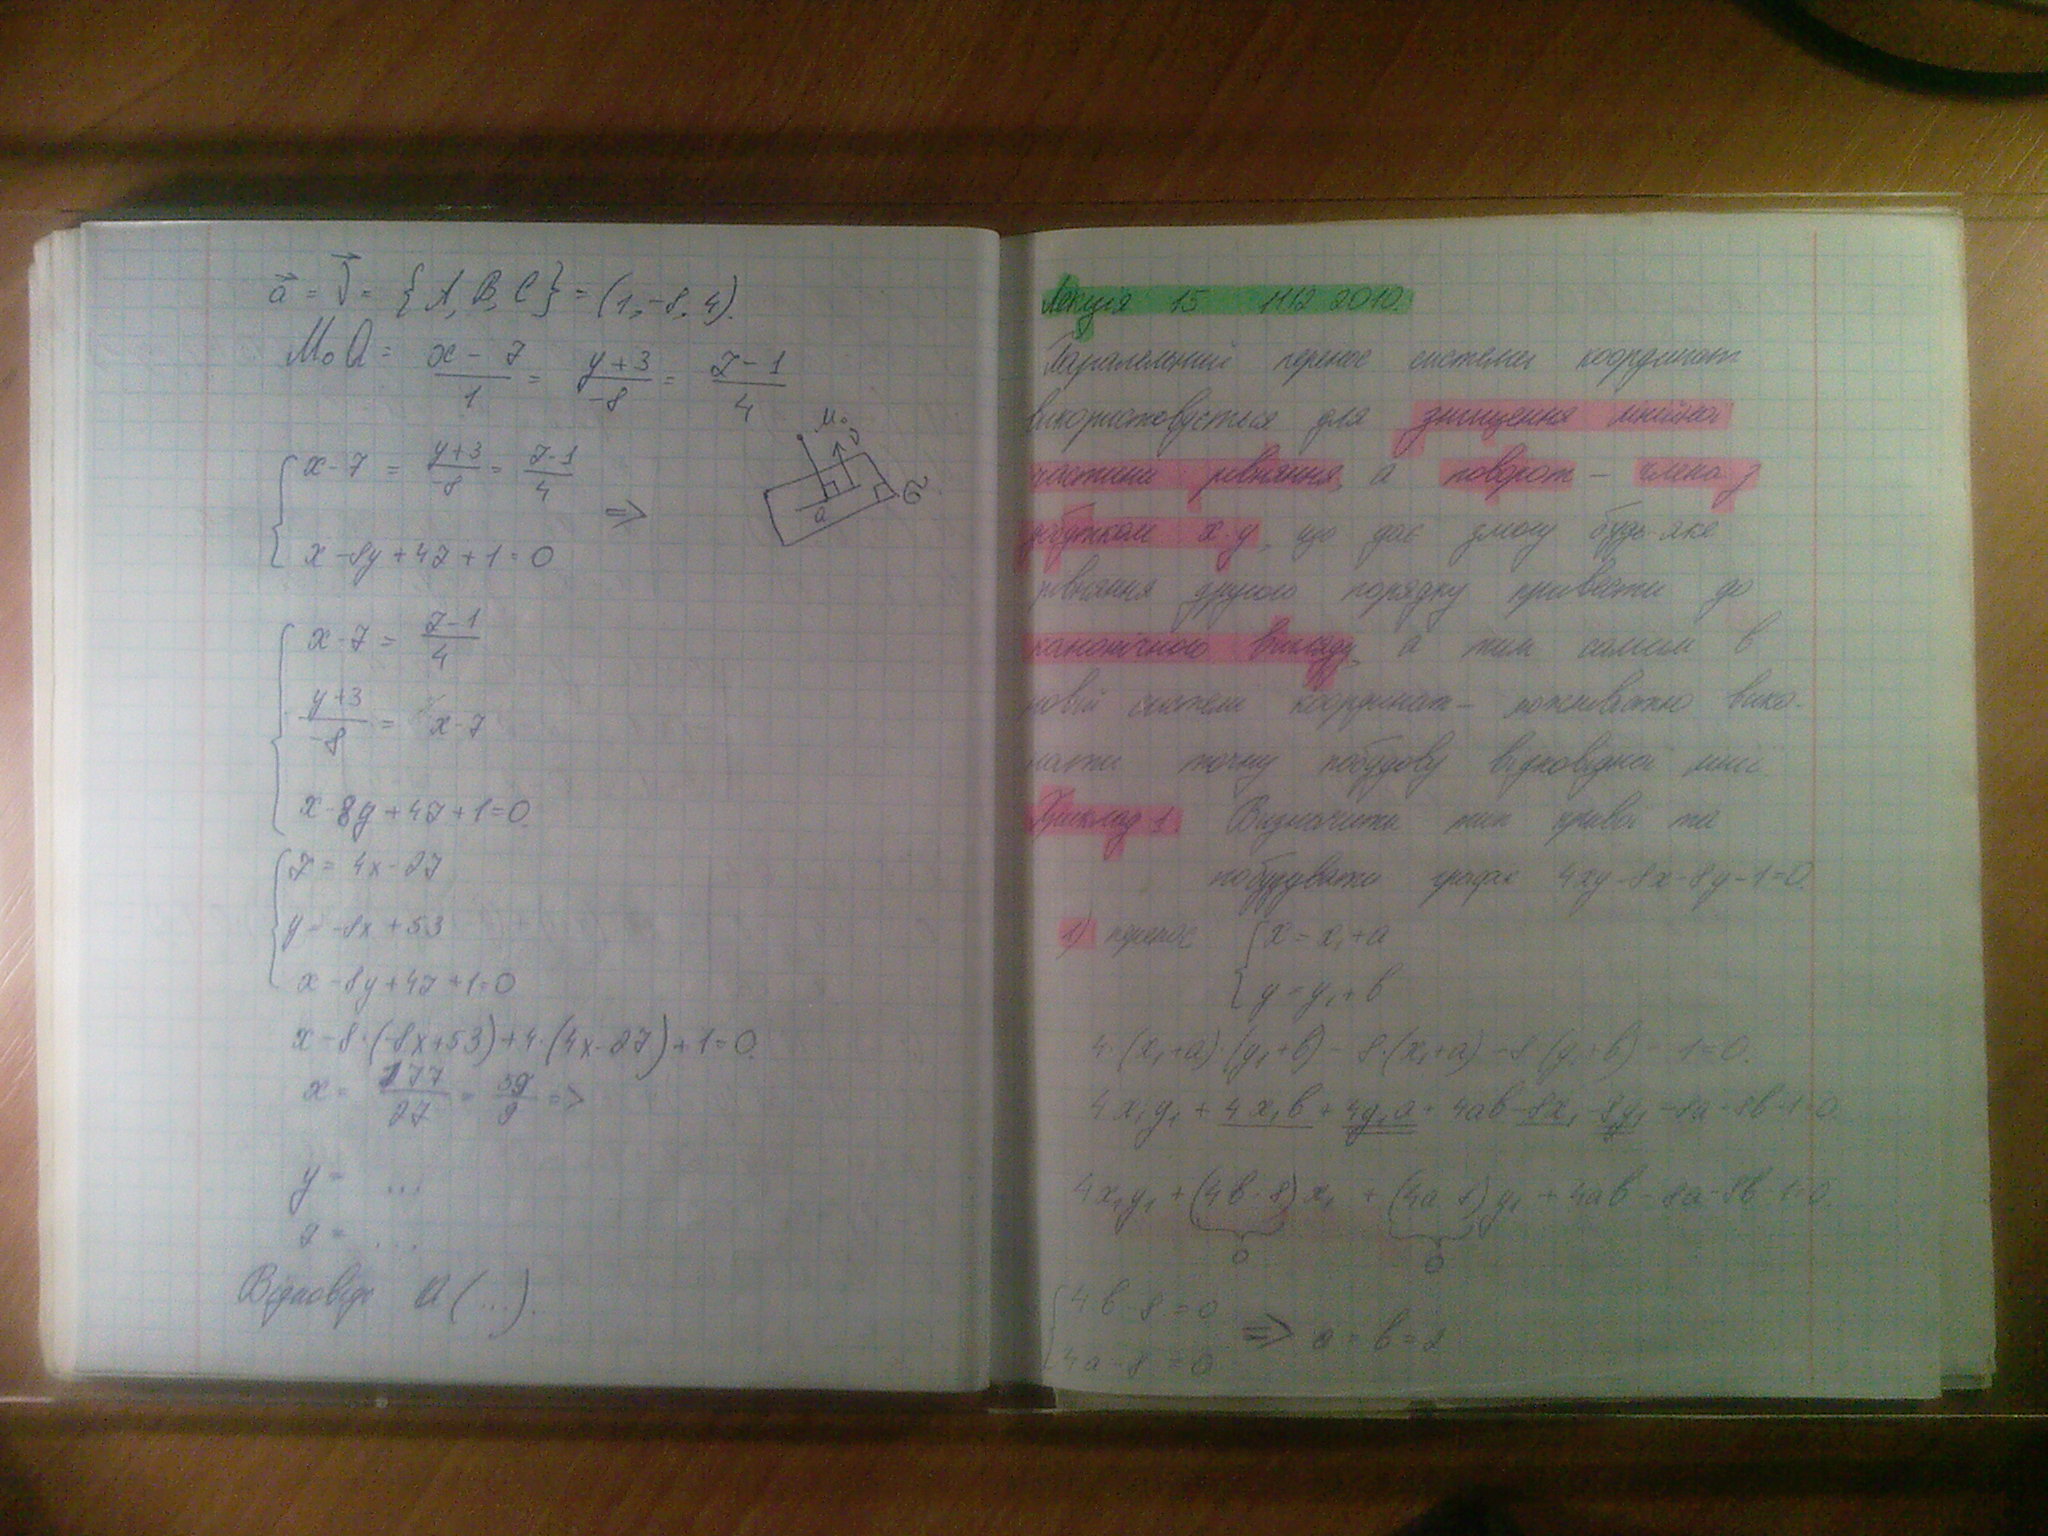 a⃗ = ν⃗ = {A, B, C} = (1, -8, 4).
M₀Q = (x-7)/1 = (y+3)/-8 = (z-1)/4
{ x-7 = (y+3)/-8 = (z-1)/4
x-8y+4z+1=0 =>
M₀
Q
{ x-7 = (z-1)/4
(y+3)/-8 = x-7
x-8y+4z+1=0
{ z = 4x-27
y = -8x+53
x-8y+4z+1=0
x-8·(-8x+53)+4·(4x-27)+1=0.
y = ...
z = ...
Відповідь Q(...).
Лекція 15 11 12 2010.
Паралельний перенос системи координат
використовується для знищення лінійної
частини рівняння, а поворот - члена з
добутком x·y, що дає змогу будь-яке
рівняння другого порядку привести до
канонічного вигляду, а тим самим в
новій системі координат - вико-
нати точну побудову відповідної лінії
Приклад 1. Визначити тип кривої та
побудувати графік 4xy-8x-8y-1=0.
1) перенос { x=x₁+a
y=y₁+b
4·(x₁+a)·(y₁+b)-8·(x₁+a)-8(y₁+b)-1=0.
4x₁y₁+4x₁b+4y₁a+4ab-8x₁-8y₁-8a-8b-1=0.
4x₁y₁+(4b-8)x₁+(4a-8)y₁+4ab-8a-8b-1=0.
0 0
{ 4b-8=0
4a-8=0 => a=b=2